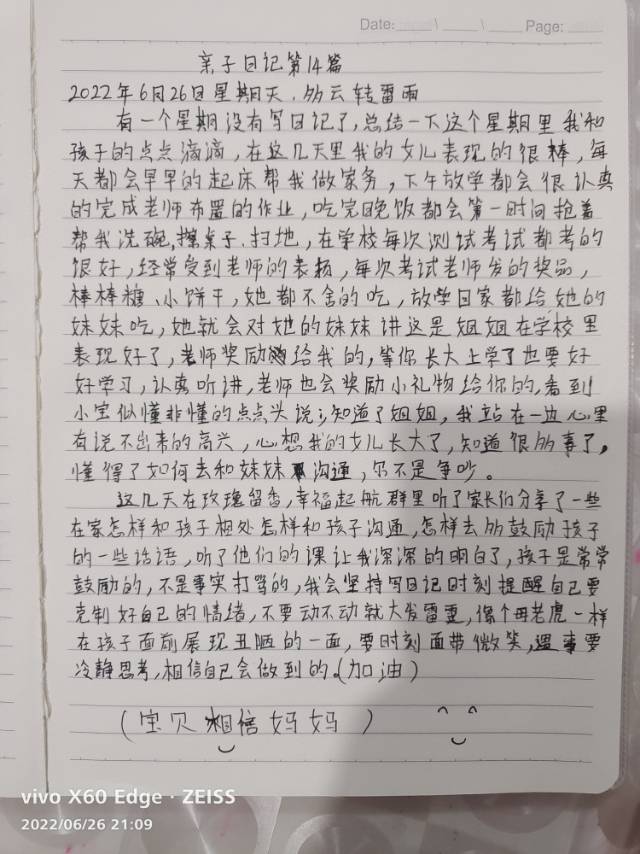 Date: \ \ Page:
亲子日记第14篇
2022年6月26日星期天.多云转雷雨
有一个星期没有写日记了,总结一下这个星期里我和
孩子的点点滴滴,在这几天里我的女儿表现的很棒,每
天都会早早的起床帮我做家务,下午放学都会很认真
的完成老师布置的作业,吃完晚饭都会第一时间抢着
帮我洗碗,擦桌子.扫地,在学校每次测试考试都考的
很好,经常受到老师的表扬,每次考试老师发的奖品,
棒棒糖、小饼干,她都不舍的吃,放学回家都给她的
妹妹吃,她就会对她的妹妹讲这是姐姐在学校里
表现好了,老师奖励给我的,等你长大上学了也要好
好学习,认真听讲,老师也会奖励小礼物给你的,看到
小宝似懂非懂的点点头说;知道了姐姐,我站在一边心里
有说不出来的高兴,心想我的女儿长大了,知道很多事了,
懂得了如何去和妹妹沟通,尔不是争吵。
这几天在玫瑰留香,幸福起航群里听了家长们分享了一些
在家怎样和孩子相处怎样和孩子沟通,怎样去多鼓励孩子
的一些话语,听了他们的课让我深深的明白了,孩子是常常
鼓励的,不是事实打骂的,我会坚持写日记时刻提醒自己要
克制好自己的情绪,不要动不动就大发雷霆,像个母老虎一样
在孩子面前展现丑陋的一面,要时刻面带微笑,遇事要
冷静思考,相信自己会做到的.(加油)
(宝贝相信妈妈)
vivo X60 Edge · ZEISS
2022/06/26 21:09